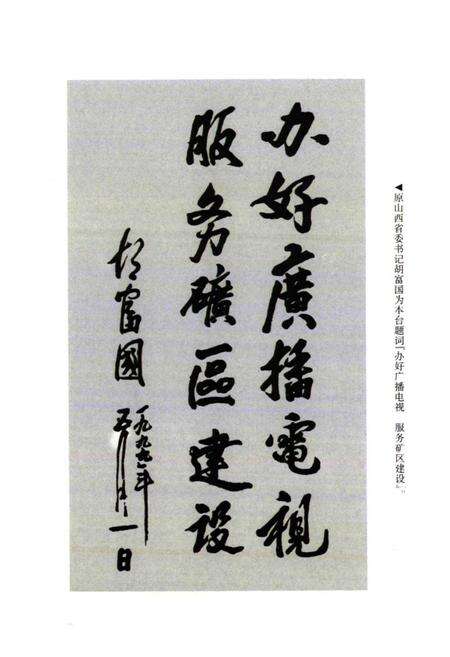 办好廣播電視
服务礦區建设
胡富國
一九九 年
五月 一日
◀原山西省委书记胡富国为本台题词“办好广播电视 服务矿区建设”。